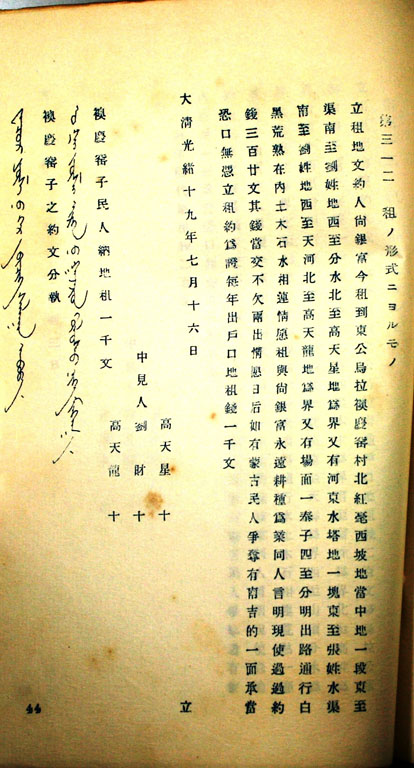 第三一二　租ノ形式ニヨルモノ
立租地文約人尚銀富今租到東公烏拉襖慶窰村北紅毫西坡地當中地一段東至
渠南至劉姓地西至分水北至高天星地為界又有河東水塔地一塊東至張姓水渠
南至劉姓地西至天河北至高天龍地為界又有場面一奉子四至分明出路通行白
黑荒熟在內土木石水相蓮情愿租與尚銀富永遠耕種為業同人言明現使過過約
錢三百廿文其錢當交不欠兩出情愿日后如有蒙古民人爭奪有南吉的一面承當
恐口無憑立租約為證每年出戶口地租錢一千文
大清光緒十九年七月十六日　立
高天星　十
中見人　劉財　十
高天龍　十
襖慶窰子民人納地租一千文
襖慶窰子之約文分執
44